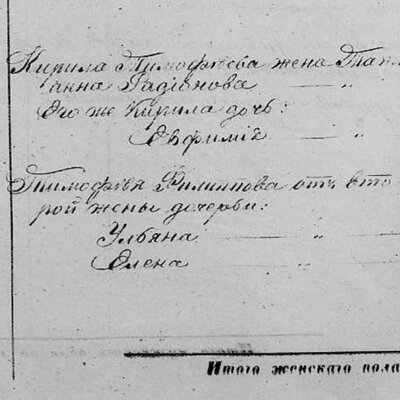 Кирила Тимофѣева жена Тать
анна Радіонова — „
Его же Кирила дочь:
Евфиміѣ — „
Тимофѣя Филиппова отъ вто
рой жены дочерьи:
Ульяна — „ —
Елена — „ —
Итого женскаго пола